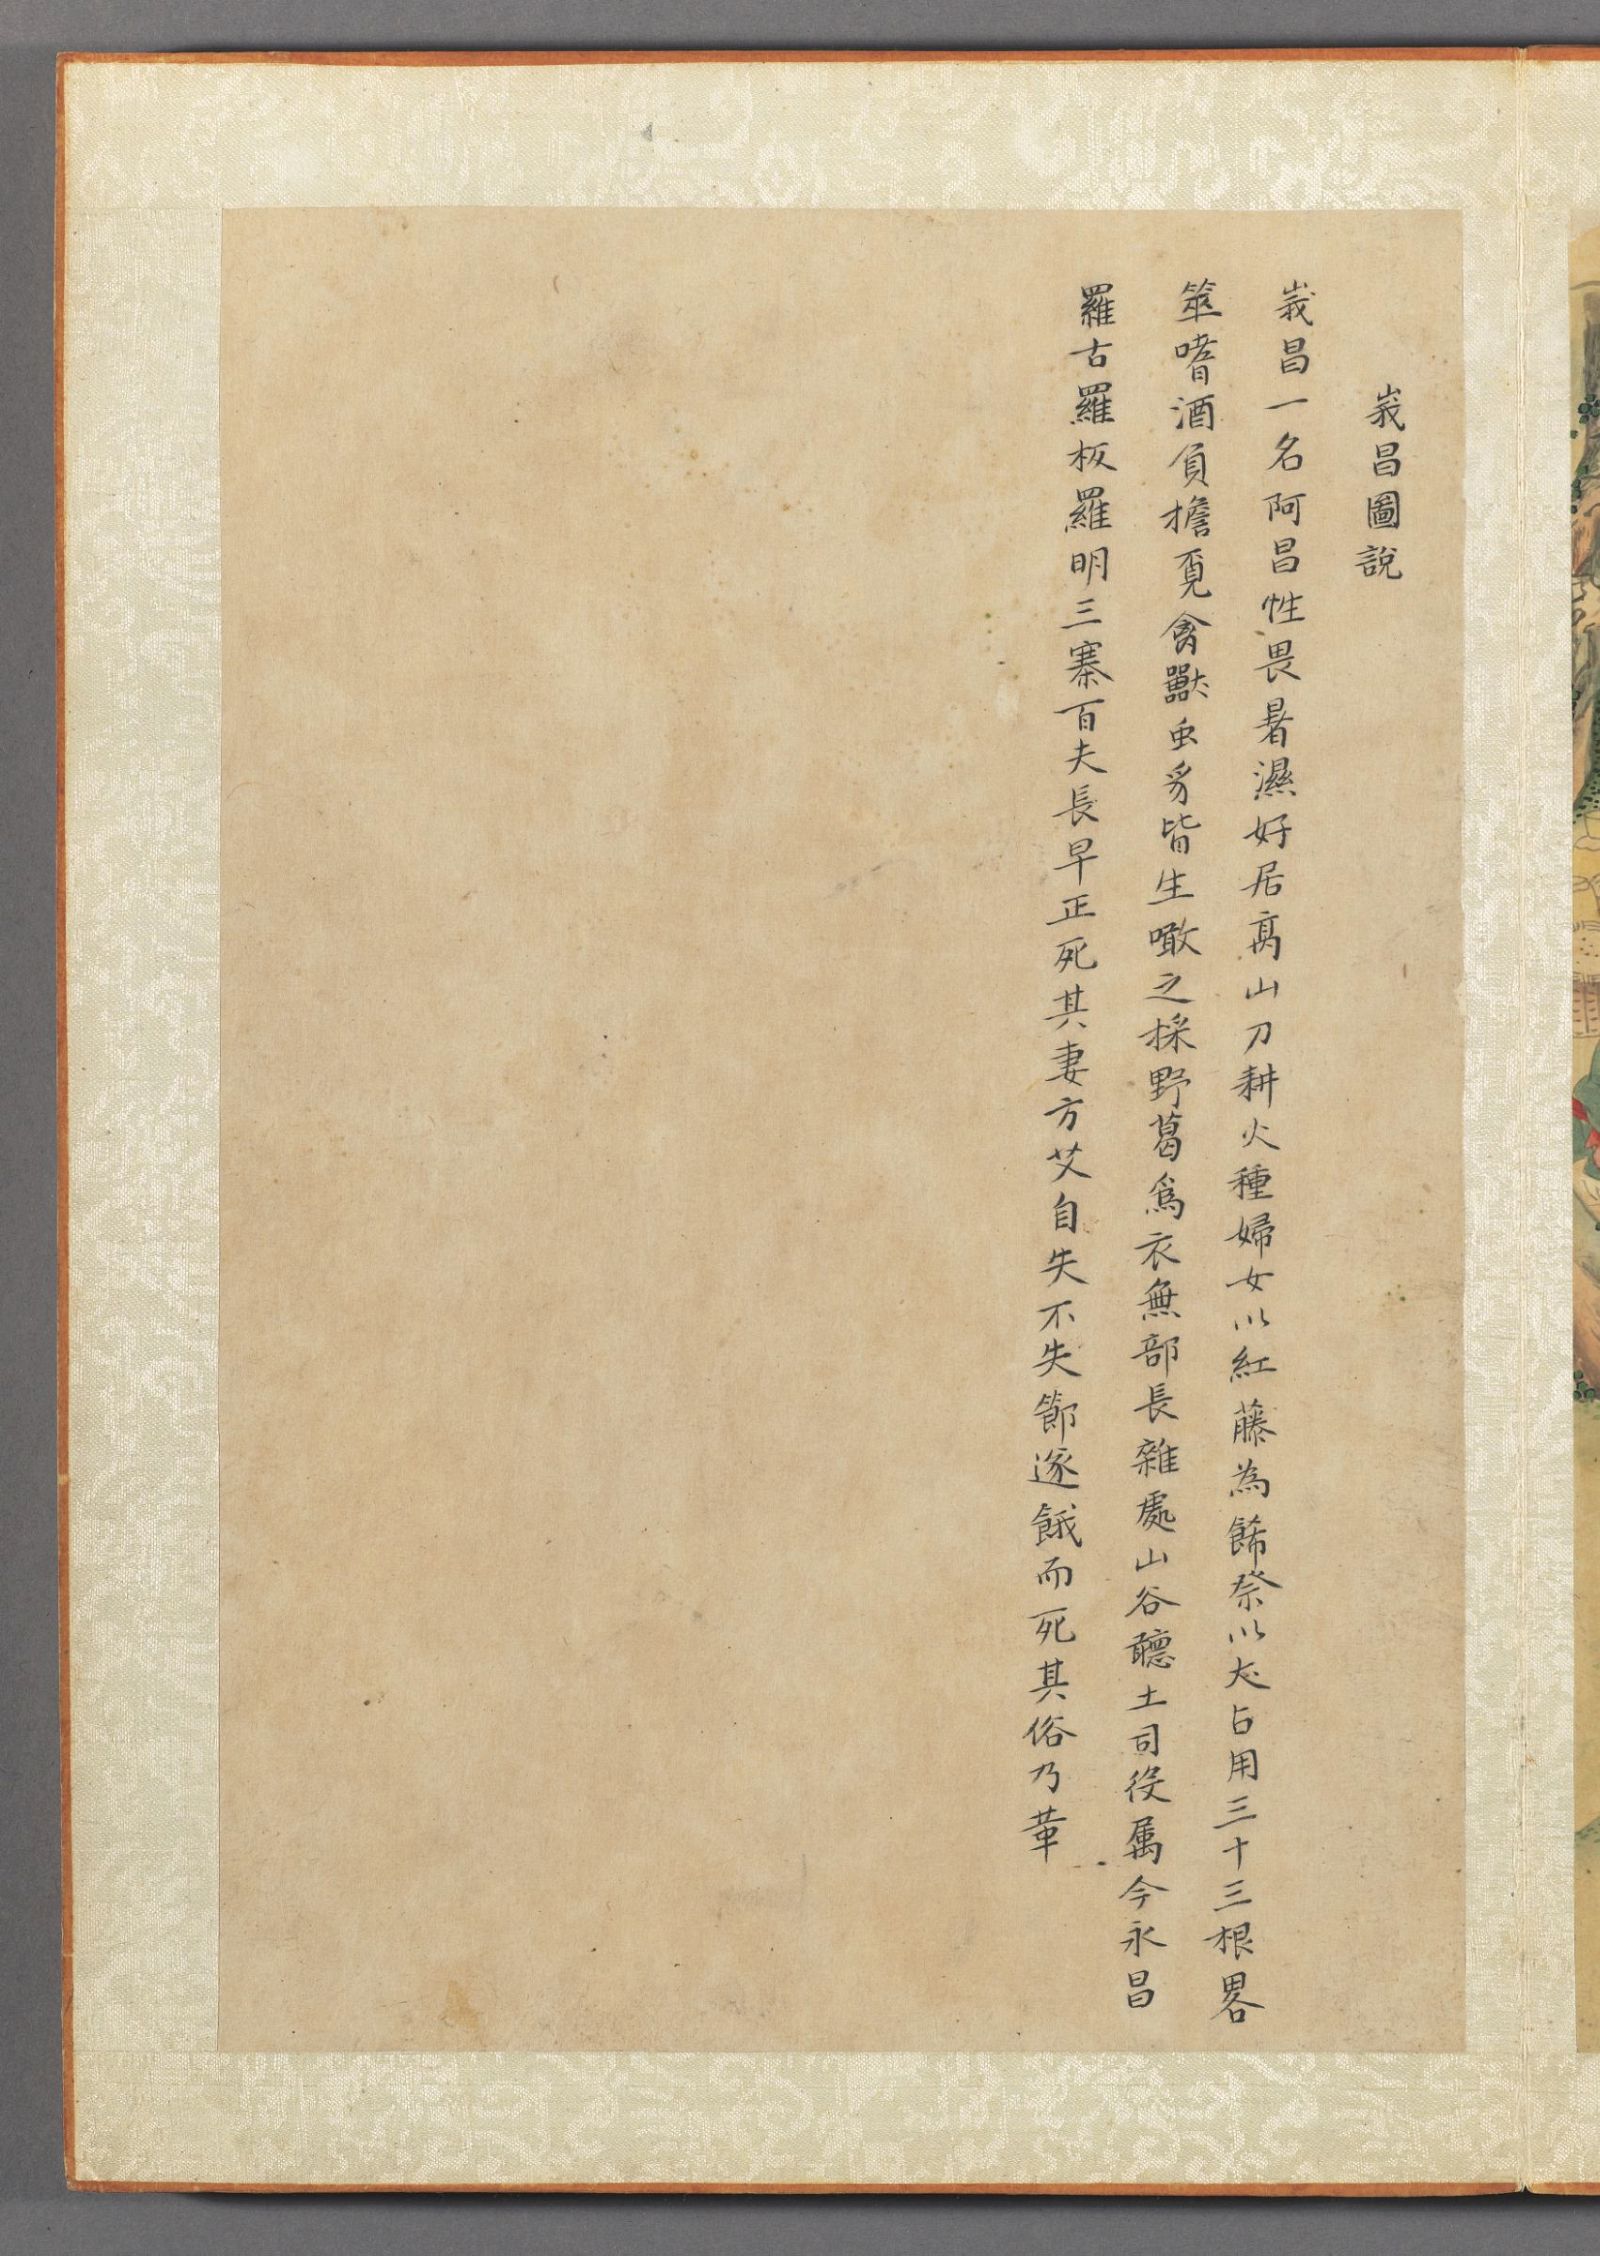 峩昌圖說
峩昌一名阿昌性畏暑濕好居高山刀耕火種婦女以紅藤為餙祭以犬占用三十三根畧
筮嗜酒負擔覔禽獸虫豸皆生噉之採野葛爲衣無部長雜處山谷聽土司役属今永昌
羅古羅板羅明三寨百夫長早正死其妻方艾自失不失節遂餓而死其俗乃革